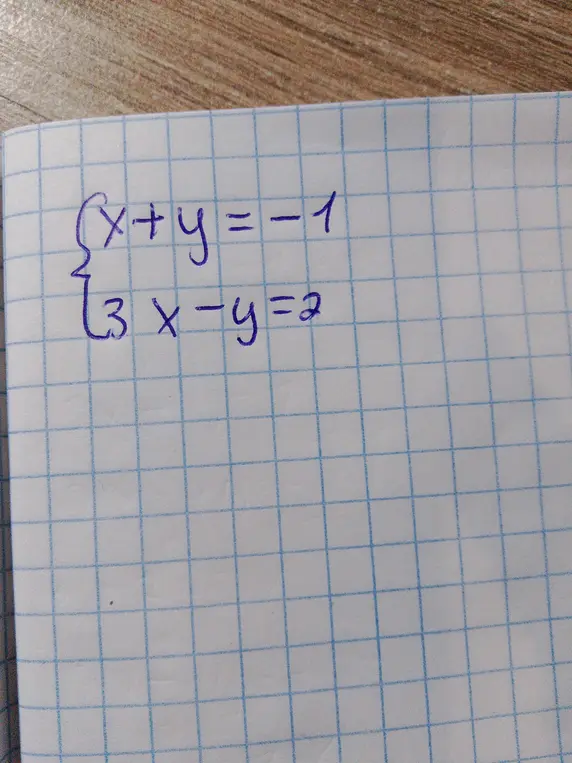 x + y = - 1
3 x - y = 2